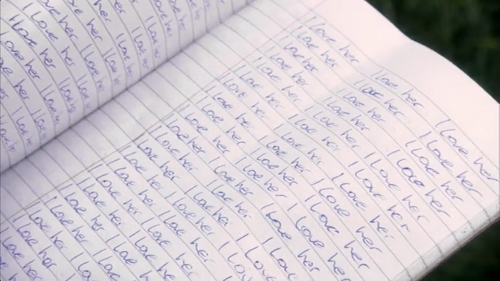 I Love her
I Love her I Love her
I Love her I Love her
I Love her I Love her
I Love her I Love her
I Love her I Love her
I Love her I Love her
I Love her
I Love her I Love her I Love her
I Love her I Love her I Love her
I Love her I Love her I Love her
I Love her I Love her I Love her
I Love her I Love her I Love her
I Love her I Love her I Love her
I Love her I Love her I Love her
I Love her I Love her I Love her
I Love her I Love her I Love
I Love her I Love her
I Love her I Love her
I Love her I Love her
I Love her
I Love her